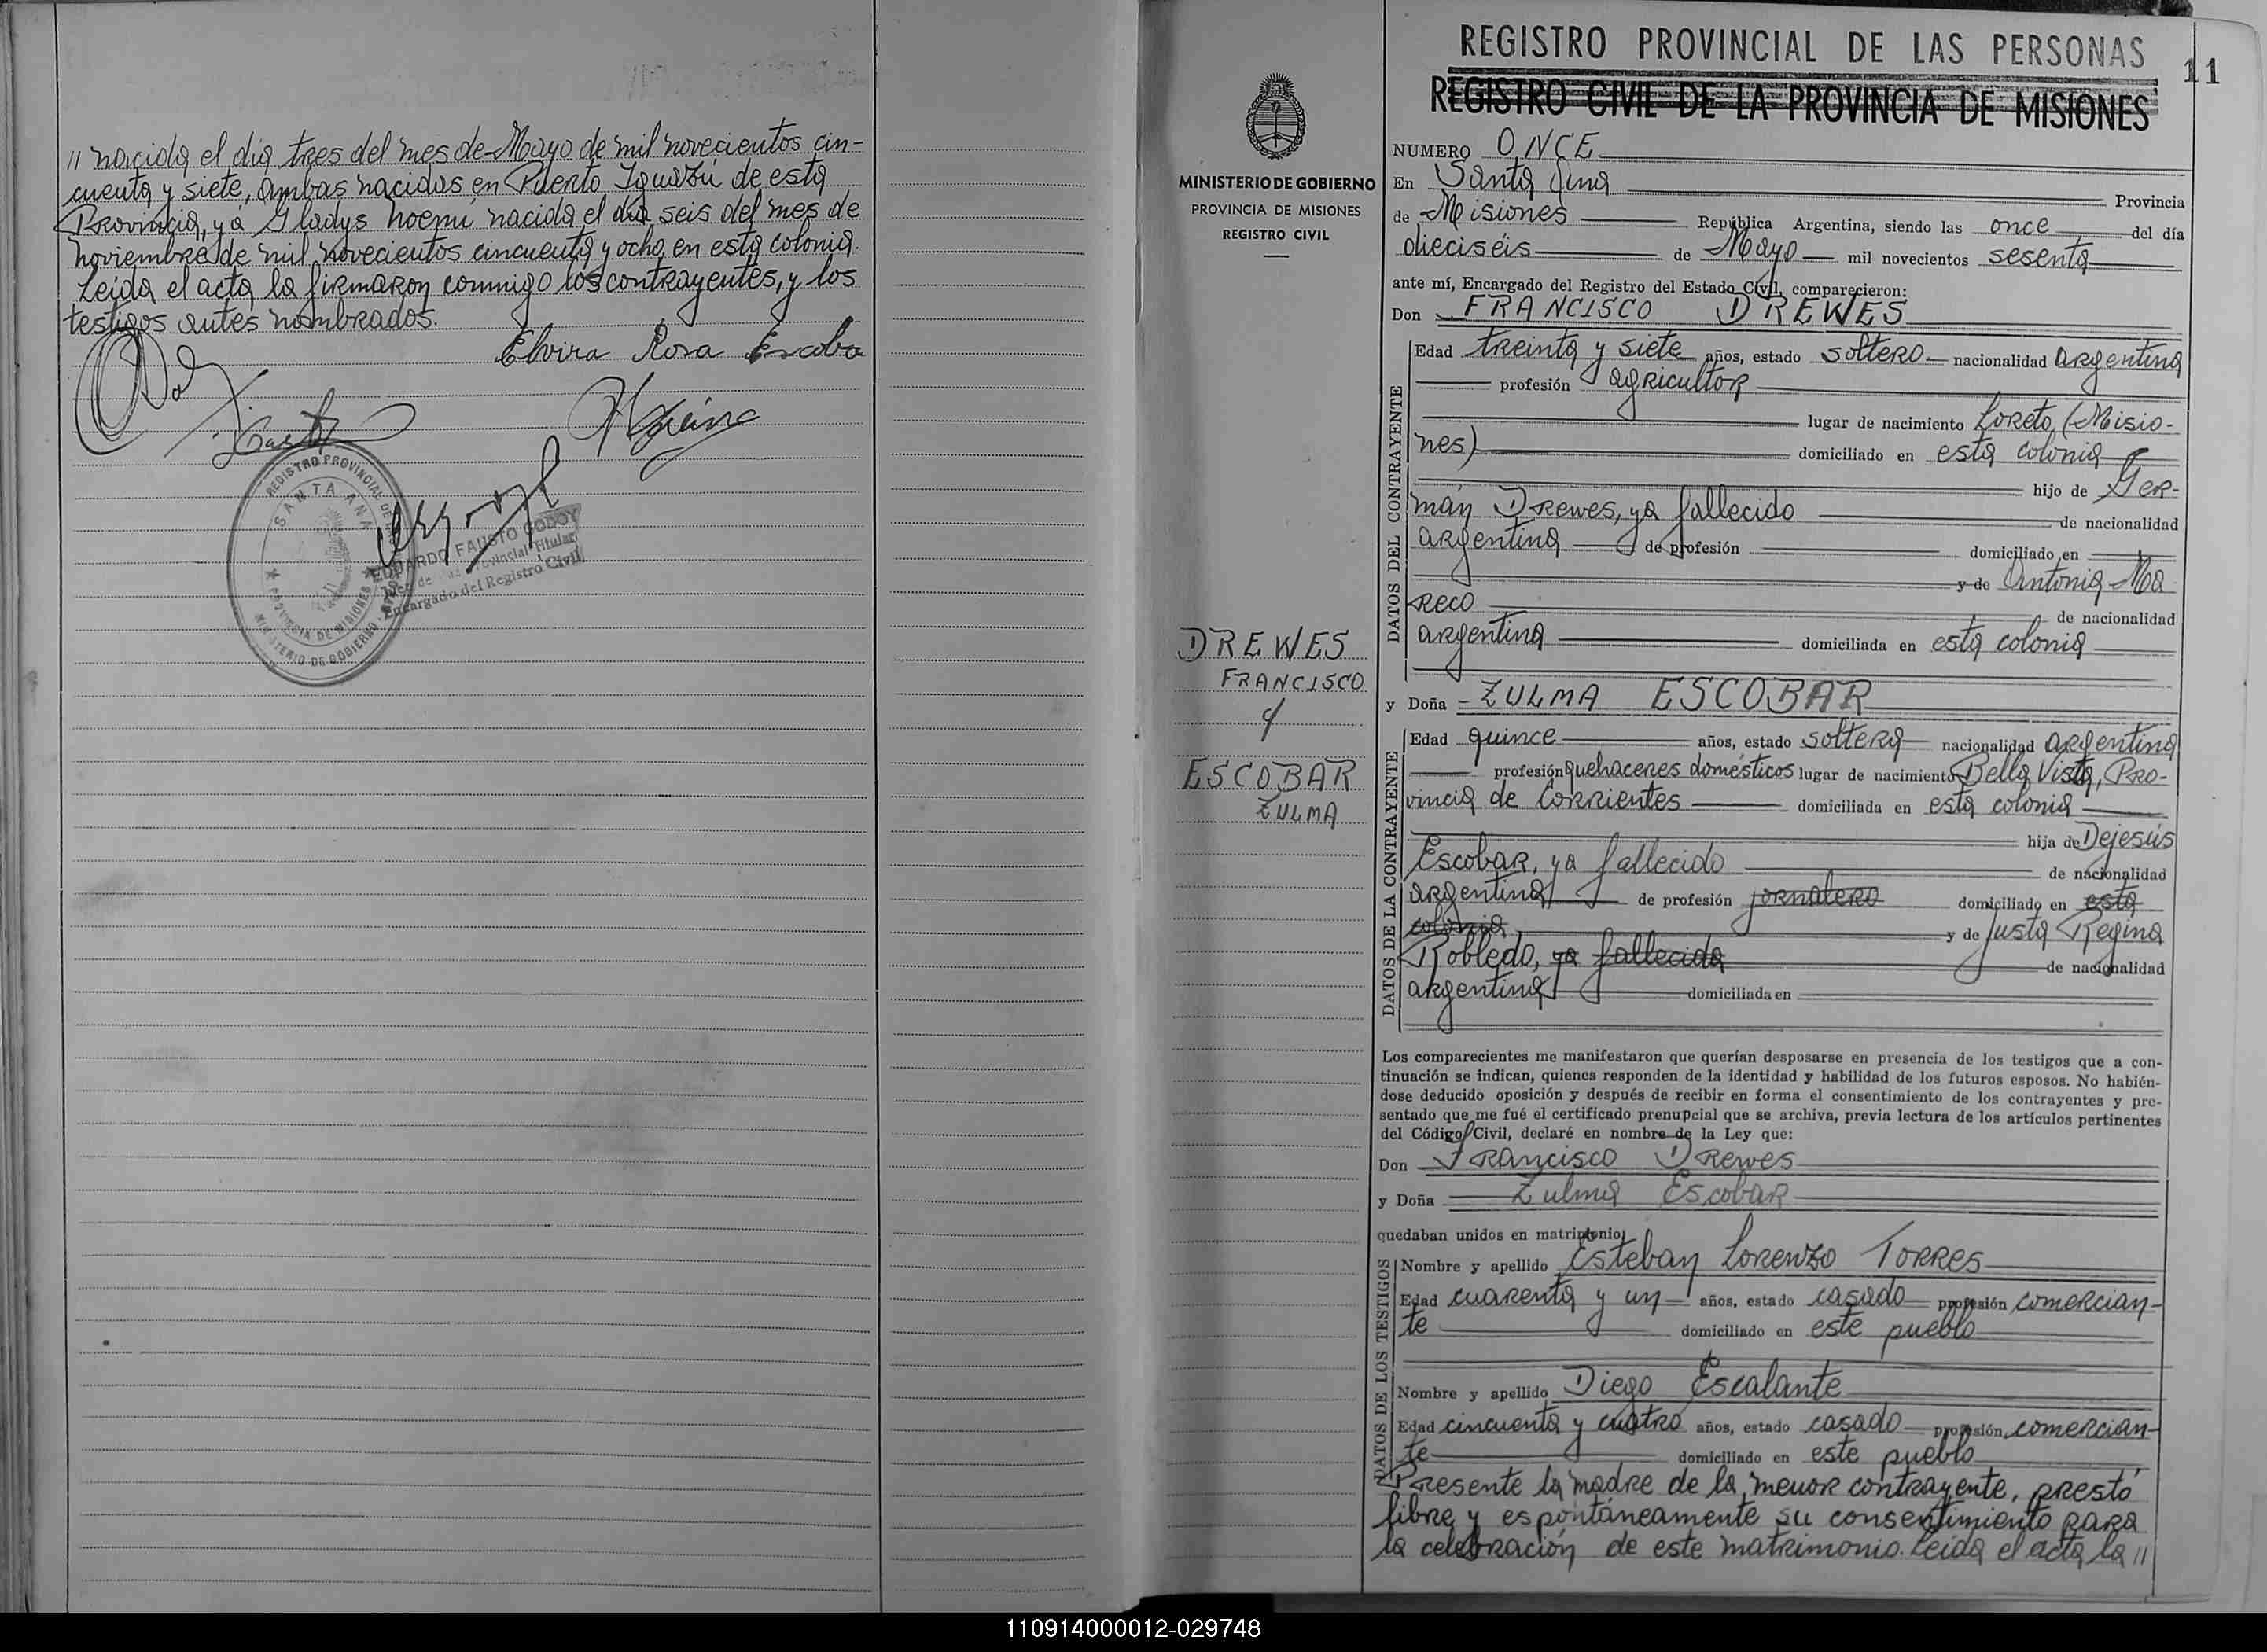 // nacida el día tres del mes de Mayo de mil novecientos cin-
cuenta y siete, ambas nacidas en Puerto Iguazú de esta
Provincia, y a Gladys Noemí nacida el día seis del mes de
noviembre de mil novecientos cincuenta y ocho, en esta colonia.
Leida el acta la firmaron conmigo los contrayentes, y los
testigos antes nombrados.
Elvira Rosa Escobar
REGISTRO PROVINCIAL DE
SANTA ANA
PROVINCIA DE MISIONES
MINISTERIO DE GOBIERNO
EDUARDO FAUSTO GODOY
Juez de Paz Provincial Titular
Encargado del Registro Civil
MINISTERIO DE GOBIERNO
PROVINCIA DE MISIONES
REGISTRO CIVIL
DREWES
FRANCISCO
y
ESCOBAR
ZULMA
REGISTRO PROVINCIAL DE LAS PERSONAS
11
REGISTRO CIVIL DE LA PROVINCIA DE MISIONES
NUMERO ONCE
En Santa Ana Provincia
de Misiones República Argentina, siendo las once del día
dieciséis de Mayo mil novecientos sesenta
ante mí, Encargado del Registro del Estado Civil, comparecieron:
Don FRANCISCO DREWES
DATOS DEL CONTRAYENTE
Edad treinta y siete años, estado soltero nacionalidad argentina
profesión agricultor
lugar de nacimiento Loreto, (Misio-
nes) domiciliado en esta colonia
hijo de Ger-
mán Drewes, ya fallecido de nacionalidad
argentina de profesión domiciliado en
y de Antonia Ma
reco de nacionalidad
argentina domiciliada en esta colonia
y Doña ZULMA ESCOBAR
DATOS DE LA CONTRAYENTE
Edad quince años, estado soltera nacionalidad argentina
profesión quehaceres domésticos lugar de nacimiento Bella Vista, Pro-
vincia de Corrientes domiciliada en esta colonia
hija de Dejesús
Escobar, ya fallecido de nacionalidad
argentina de profesión jornalero domiciliado en esta
colonia y de Justa Regina
Robledo, ya fallecida de nacionalidad
argentina domiciliada en
Los comparecientes me manifestaron que querían desposarse en presencia de los testigos que a con-
tinuación se indican, quienes responden de la identidad y habilidad de los futuros esposos. No habién-
dose deducido oposición y después de recibir en forma el consentimiento de los contrayentes y pre-
sentado que me fué el certificado prenupcial que se archiva, previa lectura de los artículos pertinentes
del Código Civil, declaré en nombre de la Ley que:
Don Francisco Drewes
y Doña Zulma Escobar
quedaban unidos en matrimonio
DATOS DE LOS TESTIGOS
Nombre y apellido Esteban Lorenzo Torres
Edad cuarenta y un años, estado casado profesión comercian-
te domiciliado en este pueblo
Nombre y apellido Diego Escalante
Edad cincuenta y cuatro años, estado casado profesión comercian-
te domiciliado en este pueblo
Presente la madre de la menor contrayente, prestó
libre y espontáneamente su consentimiento para
la celebración de este matrimonio. Leida el acta la //
110914000012-029748